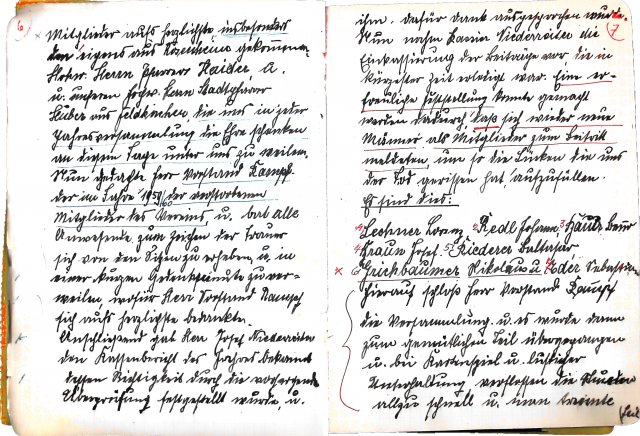 6
Mitglieder aufs herzlichste insbesonders
den eigens aus Rosenheim gekommenen
Hochw. Herrn Pfarrer Haider A.
u. unseren hochw. Herrn Stadtpfarrer
Huber aus Feldkirchen die uns in jeder
Jahresversammlung die Ehre schenken
an diesem Tage unter uns zu weilen.
Nun gedachte Herr Vorstand Kampf
der im Jahre 1959/60 der verstorbenen
Mitglieder des Vereins, u. bat alle
Anwesende zum Zeichen der Trauer
sich von den Sitzen zu erheben u. in
einer kurzen Gedenkminute zu ver-
weilen, wofür Herr Vorstand Kampf
sich aufs herzlichste bedankte.
Anschließend gab Herr Josef Niederreiter
den Kassenbericht des Jahres bekannt
dessen Richtigkeit durch die vorhergehende
Überprüfung festgestellt wurde u.
7
ihm dafür Dank ausgesprochen wurde.
Nun nahm Kassier Niederreiter die
Einkassierung der Beiträge vor die in
kürzester Zeit erledigt war. Eine er-
freuliche Feststellung konnte gemacht
werden dadurch, daß sich wieder neue
Männer als Mitglieder zum Beitritt
meldeten, um so die Lücken die uns
der Tod gerissen hat aufzufüllen.
Es sind dies:
1 Lechner Lorenz, 2 Redl Johann, 3
4 Braun Josef 5 Riederer Balthasar
× 6 Nikolaus u. 7 Eder Sebastian
Hierauf schloß Herr Vorstand Kampf
die Versammlung u. es wurde dann
zum gemütlichen Teil übergegangen
u. bei Kartenspiel u. lustiger
Unterhaltung verflossen die Stunden
allzu schnell u. man trennte